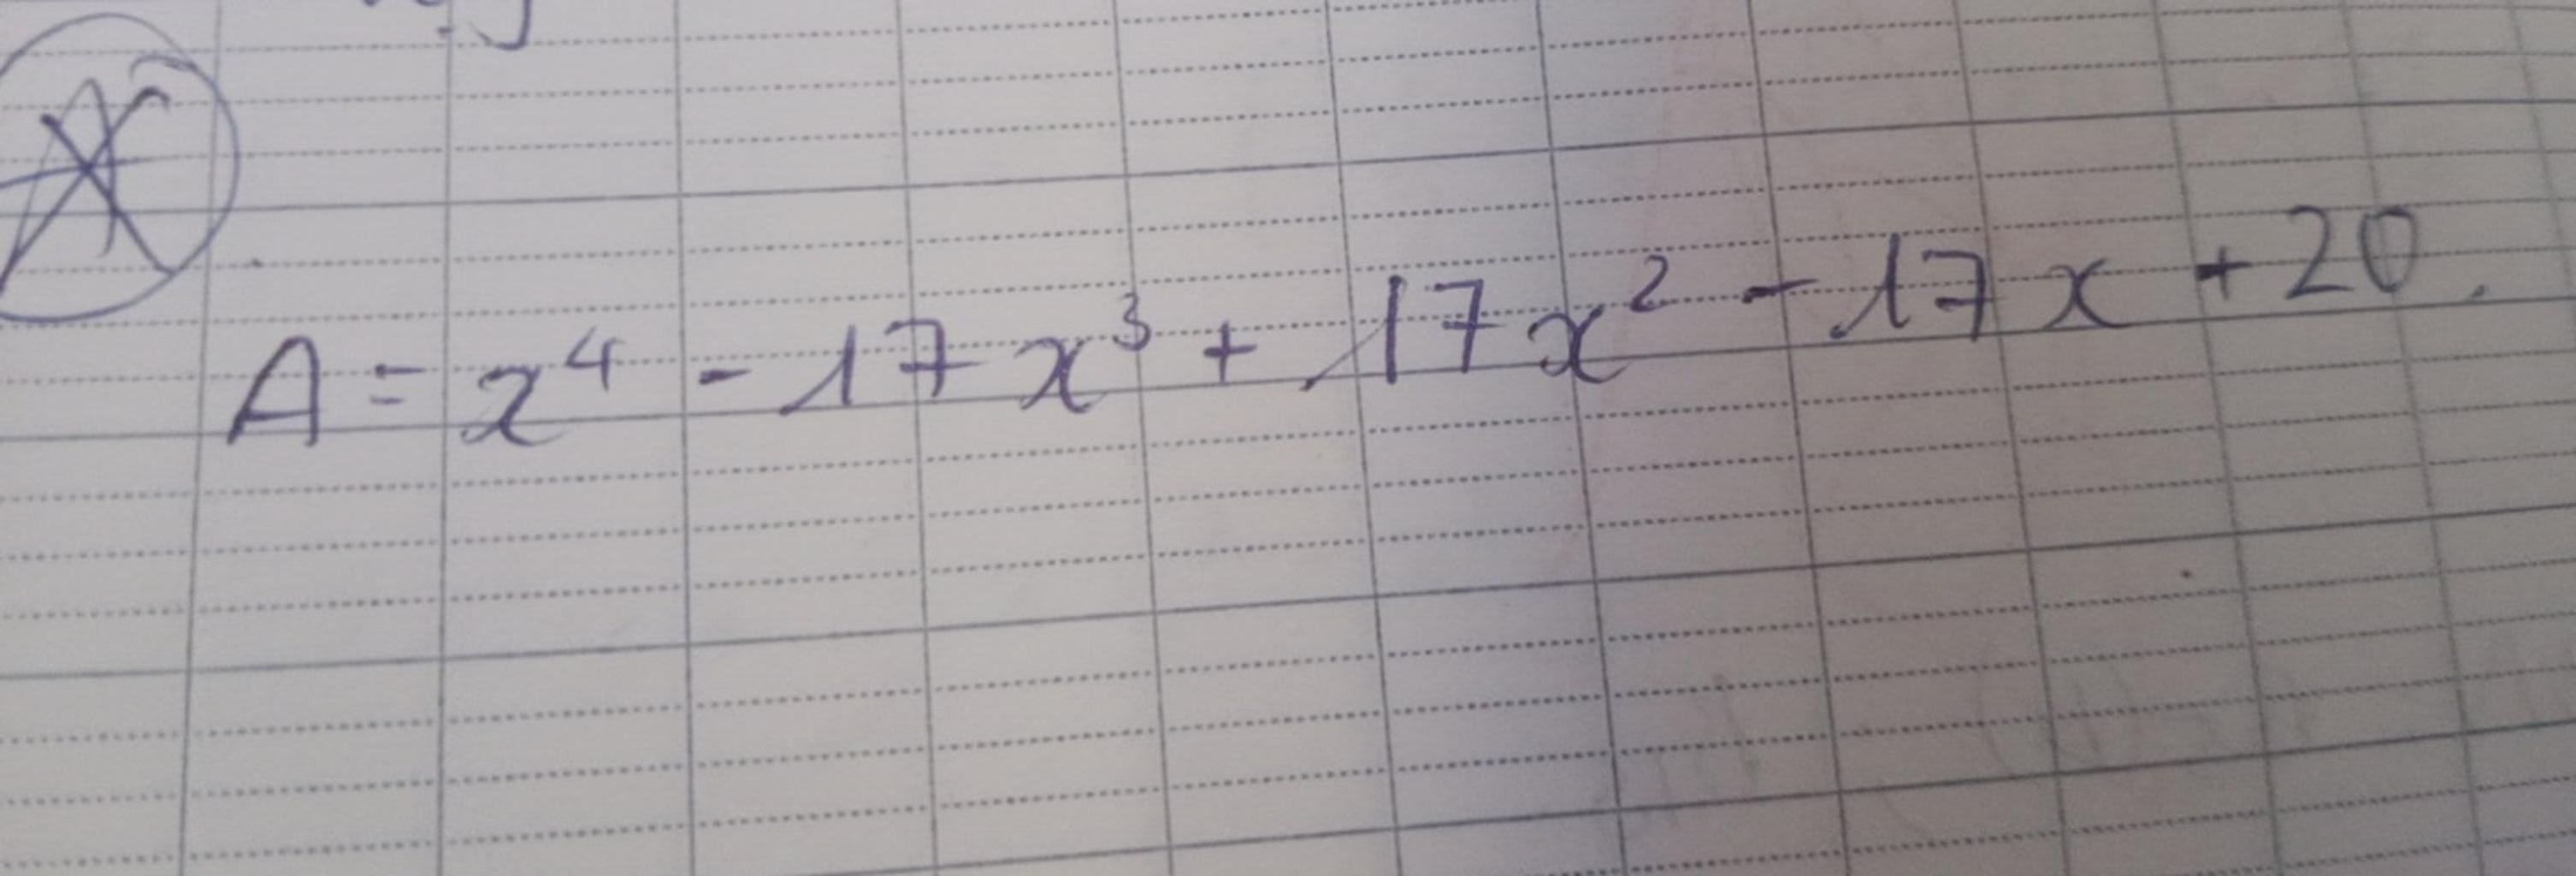 A = x⁴ - 17x³ + 17x² - 17x + 20.